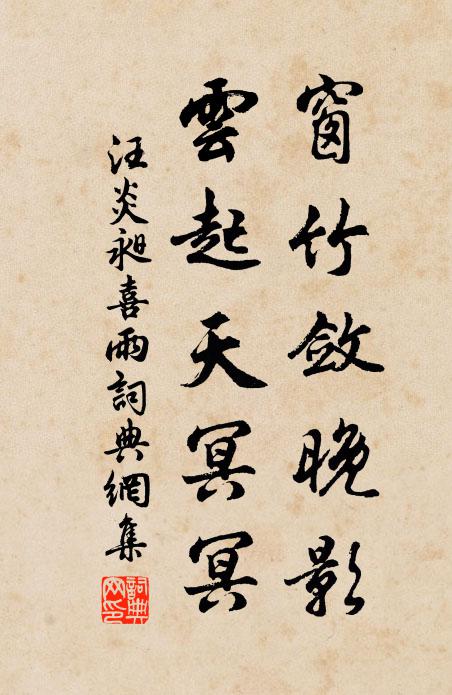 窗竹斂晚影
雲起天冥冥
汪炎昶喜雨詞典網集
詞典网印